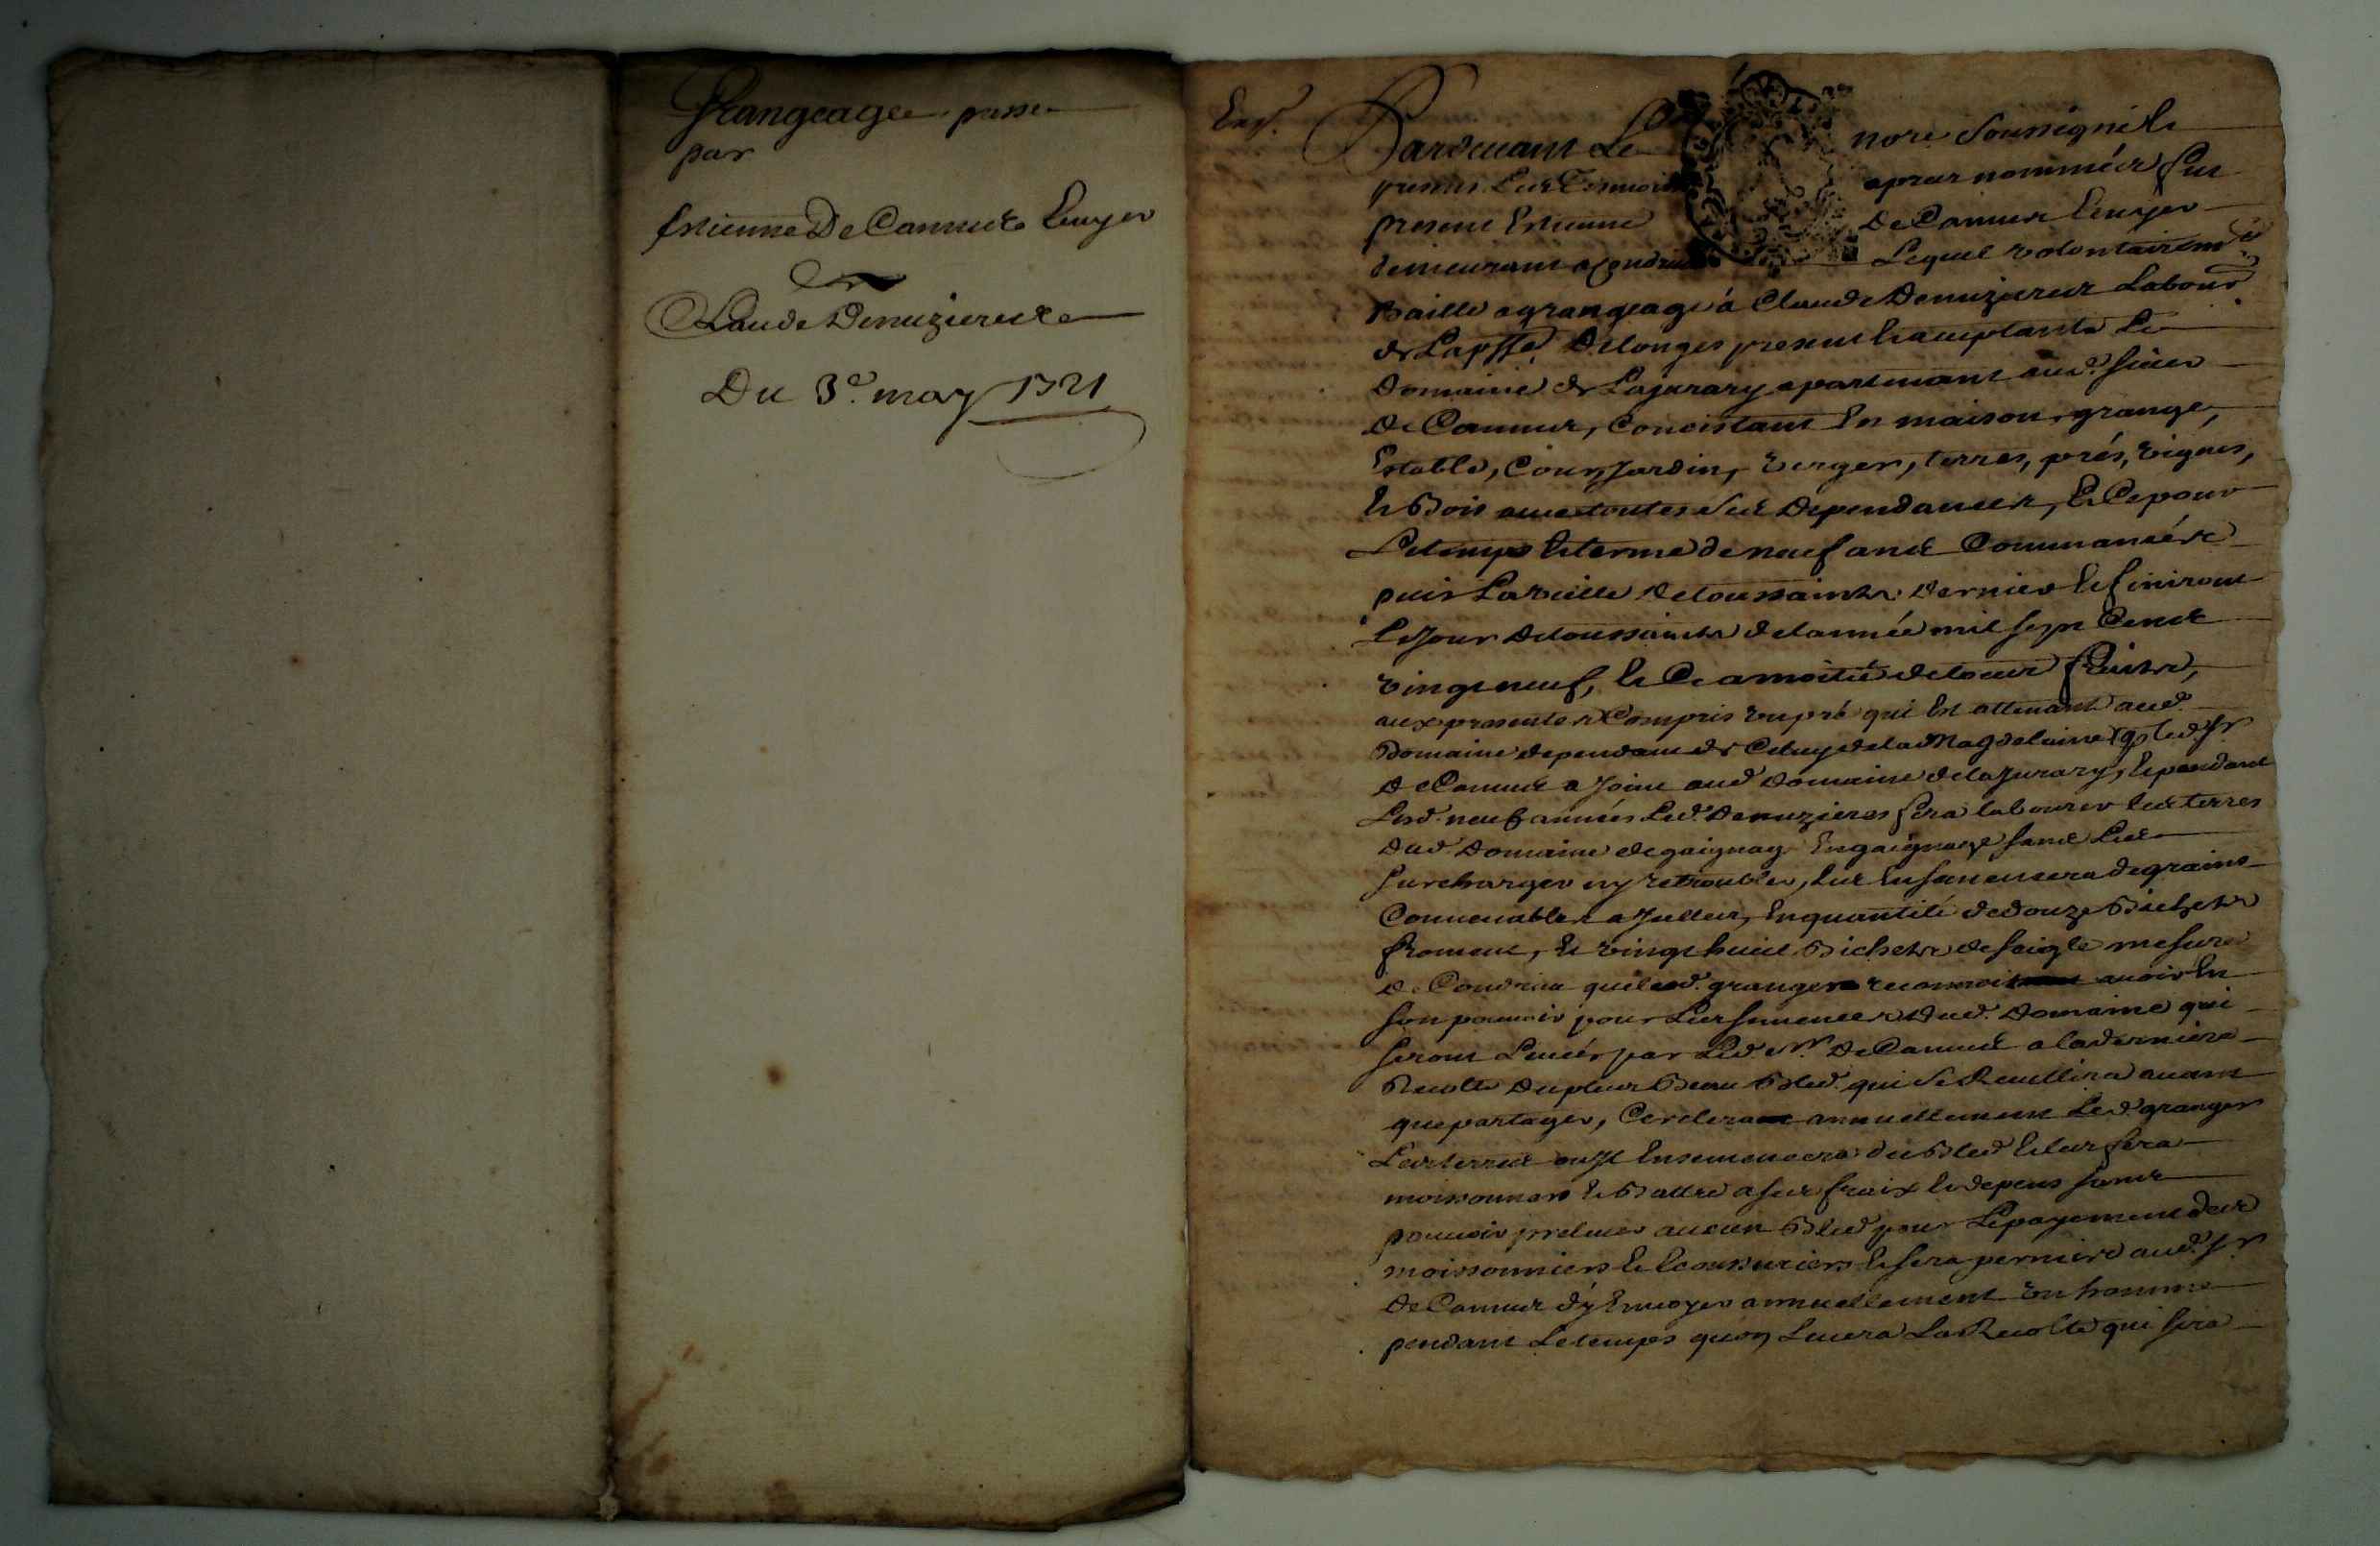 Grangeage passé
par
Estienne De Cannues Ecuyer
Claude Denuzieres
Du 3e. may 1721
Exp.
Pardevant Le nore soussigné Et
presens Les Tesmoins apres nommées fut
present Estienne De Cannes Ecuyer
demeurant a Condrieu Lequel volontairemt
Baille a grangeage à Claude Denuzieres Labour
de Lapsse Delonges present Et acceptant Le
Domaine de Lajurary apartenant aud. sieur
De Cannes, Concistant En maison, grange,
Estable, Cour, Jardin, verger, terres, prés, vignes,
Et Bois avec toutes Ses Dependances, Et Ce pour
Le temps Et terme de neuf ans Commancés de
puis La veille De toussaints dernier Et finiront
Le Jour De toussaints de lannée mil sept Cens
vingt neuf, Et Ce a moitié de tous fruits,
aux presentes Compris un pré qui Est attenant aud.
Domaine dependant de Celuy de la Magdelaine que led. sr
De Cannes a Joint aud Domaine de la Jurary, Et pendant
Lesd. neuf années Led. Denuzieres fera labourer Les terres
Dud. Domaine de gaignage En gaignage sans Les
surcharger ny retroubler, Les Ensemencera de grains
Convenables a Jcelles, En quantité de douze Bichets
froment, Et vingt huit Bichets de seigle mesure
De Condrieu que led. granger reconnoit avoir En
son pouvoir pour Les semences Dud. Domaine qui
seront Levés par Led. sr. De Cannes a la derniere
Recolte Du plus Beau Bled qui Se Recullira avant
que partager, Cerclera annuellement Led. granger
Les terres ou Jl Ensemencera du Bled Et les fera
moissonner Et Battre a ses fraix Et depens sans
pouvoir prelever aucun Bled pour Le payement des
moissonniers Et Ecoussuriers Et sera permis aud. sr
De Cannes d'y Envoyer annuellement un homme
pendant Le temps quon Levera La Recolte qui sera